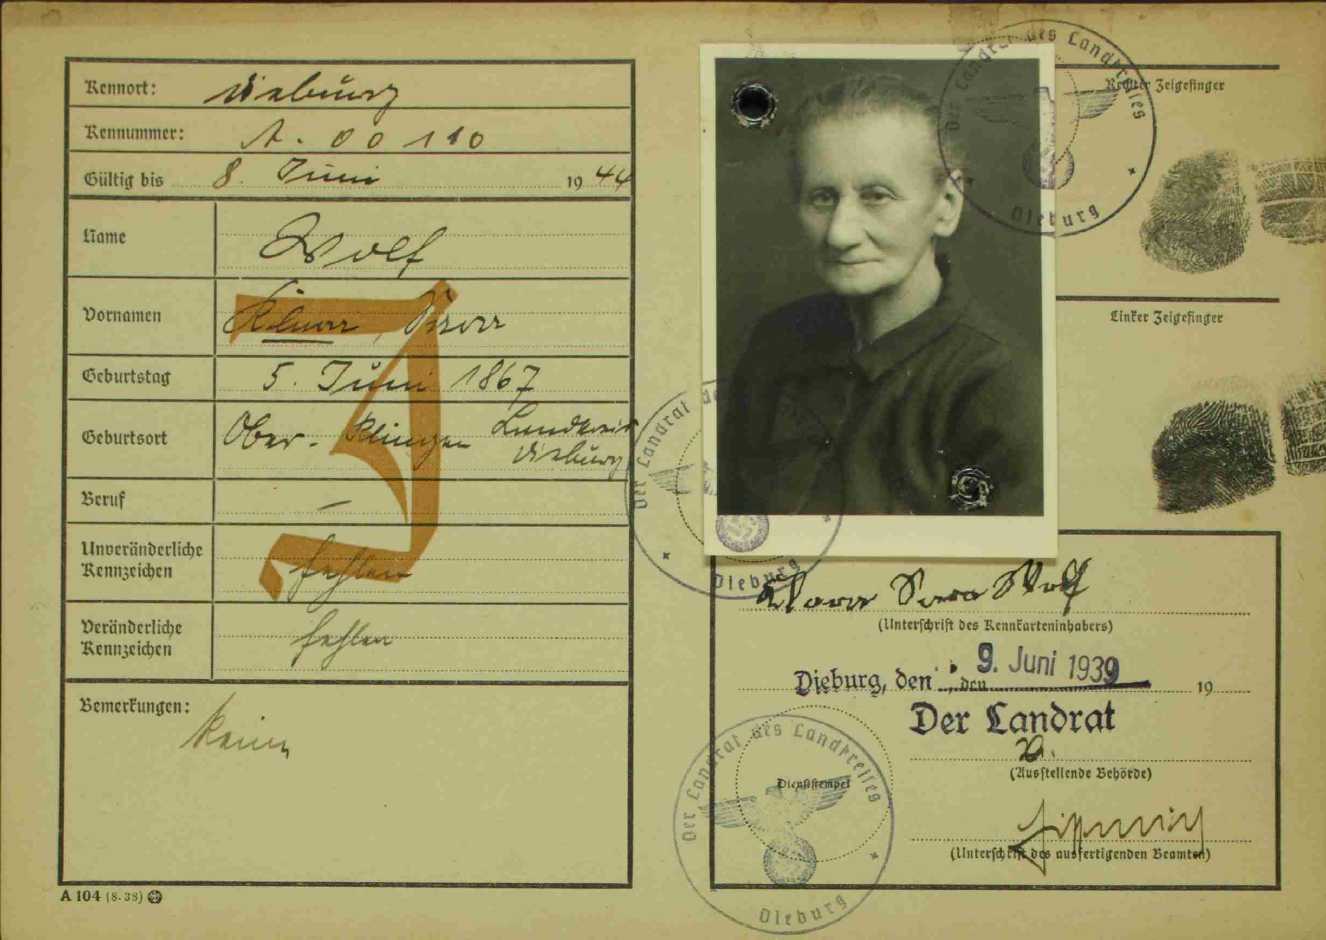 Kennort: Dieburg
Kennummer: A. 00 110
Gültig bis 8. Juni 1944
Name Wolf
Vornamen Klara, Sara
Geburtstag 5. Juni 1867
Geburtsort Ober-Klingen Landkreis
Dieburg
Beruf —
Unveränderliche
Kennzeichen fehlen
Veränderliche
Kennzeichen fehlen
Bemerkungen:
keine
J
A 104 (8. 38)
Der Landrat des Landkreises
Dieburg
Rechter Zeigefinger
Linker Zeigefinger
Der Landrat des
Dieburg
Klara Sara Wolf
(Unterschrift des Kennkarteninhabers)
Dieburg, den , den 9. Juni 1939 19
Der Landrat
(Ausstellende Behörde)
Der Landrat des Landkreises
Dienststempel
Dieburg
(Unterschrift des ausfertigenden Beamten)